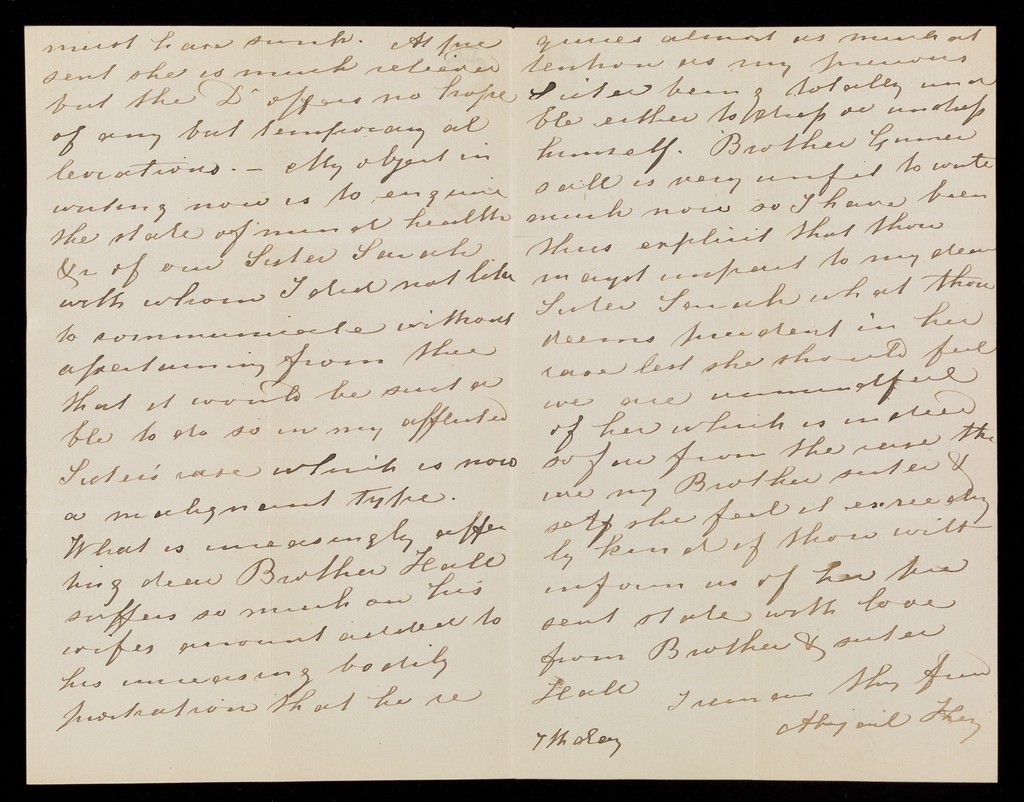 must have sunk. At pre
sent she is much relieved
but the Dr offers no hope
of any but temporary al
leviations. – My object in
writing now is to enquire
the state of mind health
&c of our Sister Sarah
with whom I did not like
to communicate without
ascertaining from thee
that it would be suita
ble to do so in my afflicted
Sister's case which is now
a malignant type.
What is increasingly affec
ting dear Brother Hall
suffers so much on his
wifes account added to
his increasing bodily
prostration that he re
quires almost as much at
tention as my precious
Sister being totally una
ble either to dress or undress
himself. Brother
is very unfit to write
much now so I have been
thus explicit that thou
mayst impart to my dear
Sister Sarah what thou
deems prudent in her
case lest she should feel
we are unmindful
of her which is indeed
so far from the case
we my Brother sister &
self feel it exceeding
ly kind if thou wilt
inform us of her pre
sent state with love
from Brother & sister
Hall
I remain thy
Abigail
7th day